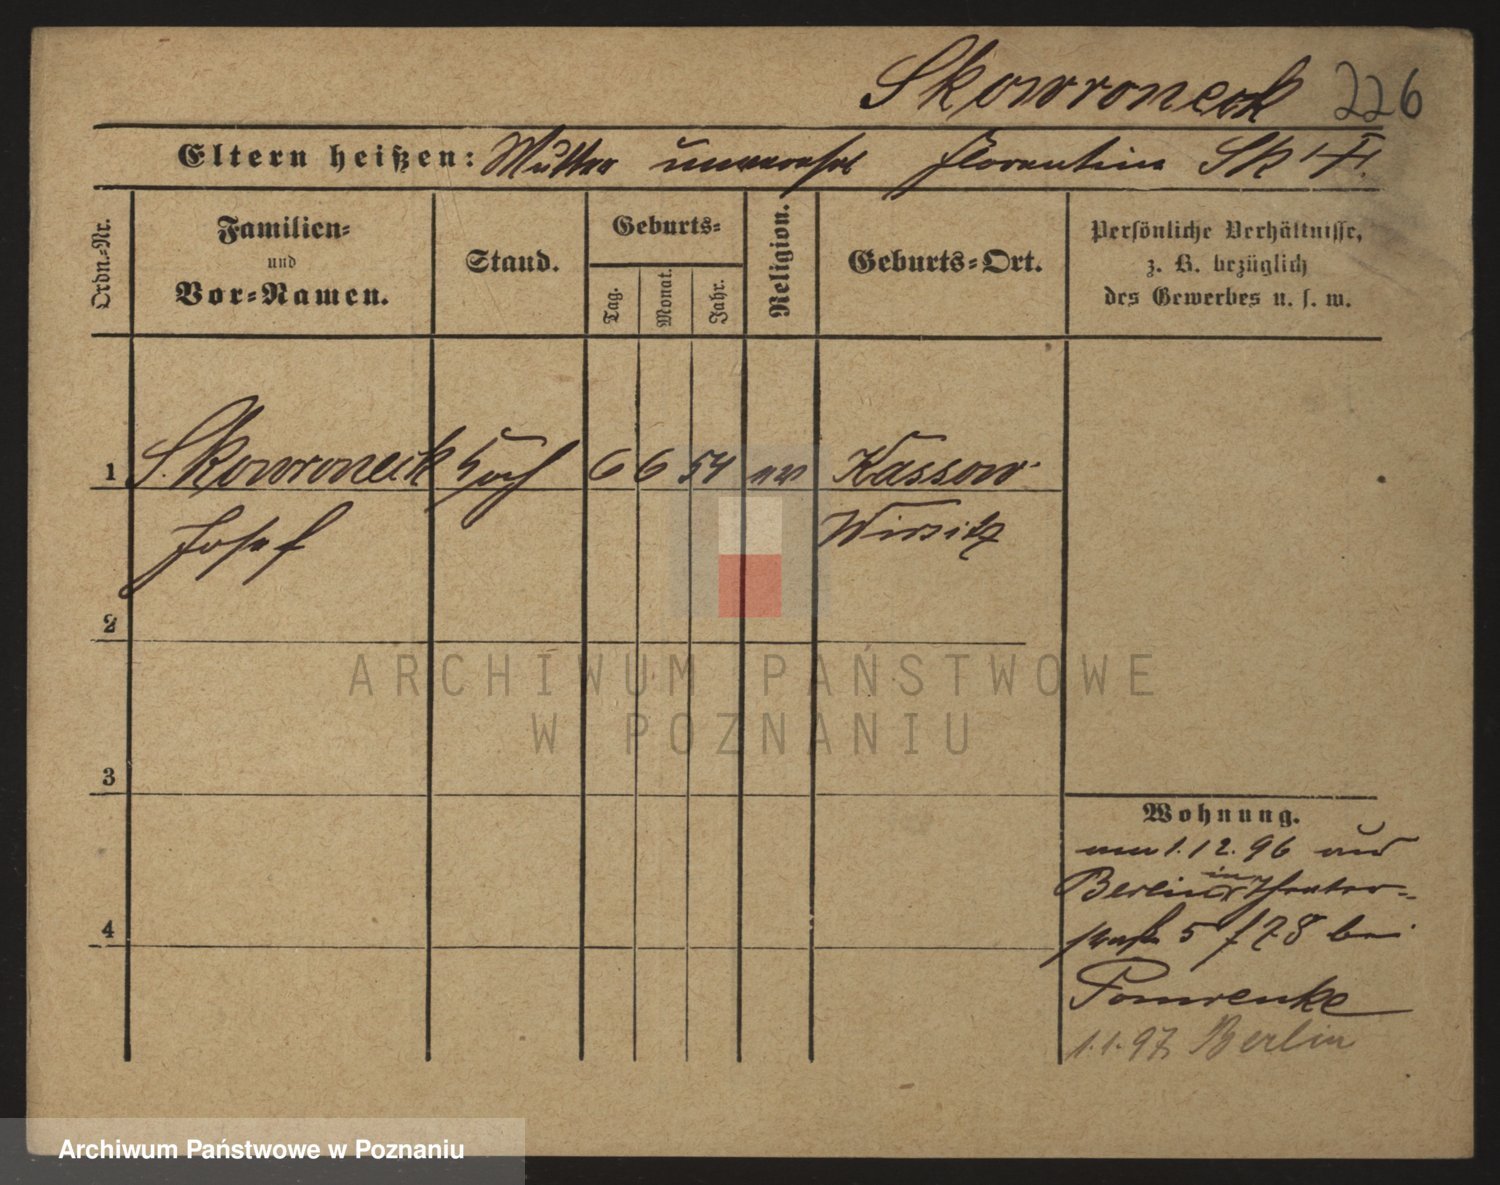 Skowroneck 226
Eltern heißen: Mutter unverehel Florentine Sk
Ordn.-Nr.
Familien-
und
Vor-Namen.
Stand.
Geburts-
Tag.
Monat.
Jahr.
Religion.
Geburts-Ort.
Persönliche Verhältnisse,
z. B. bezüglich
des Gewerbes u. s. w.
1 Skowroneck Koch 6 6 54 ev Kassow
Josef Wirsitz
2
ARCHIWUM PAŃSTWOWE
W POZNANIU
3
Wohnung.
am 1.12.96 aus
Berlin in Theater-
straße 5 bei
4
Pomrenke
1.1.97 Berlin
Archiwum Państwowe w Poznaniu